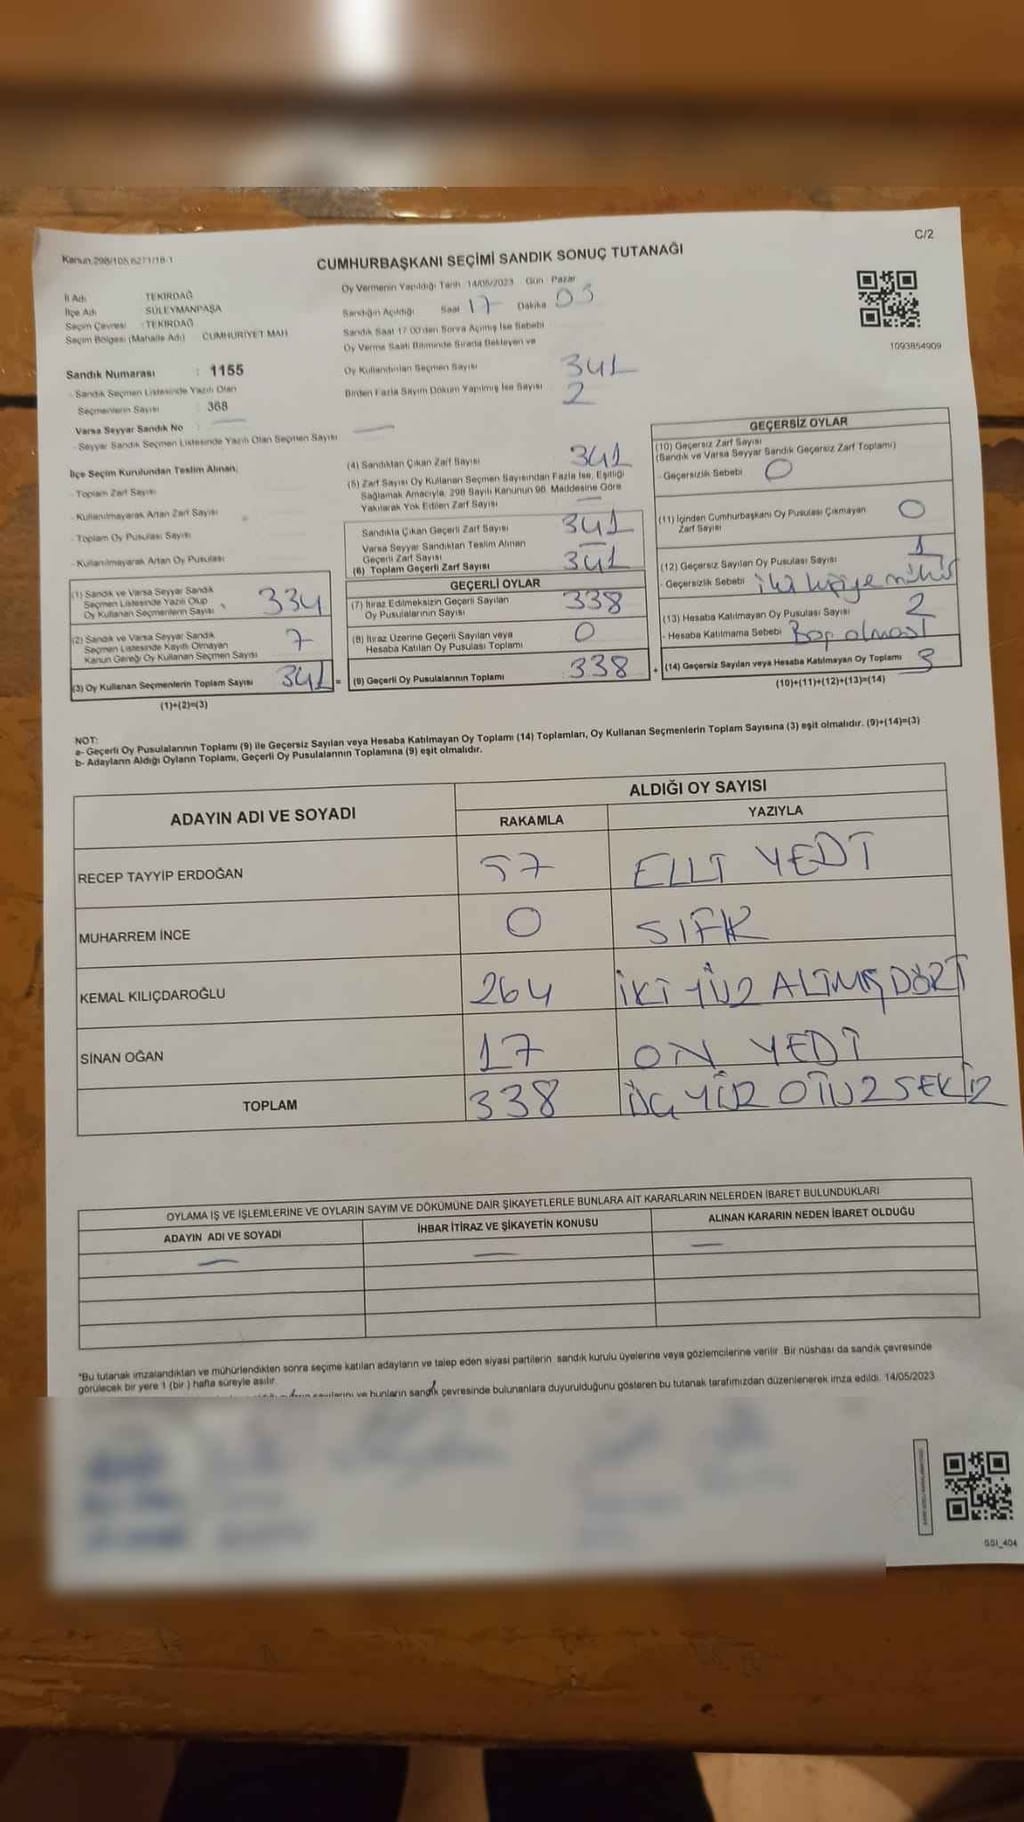 C/2
Kanun.298/105.6271/18-1
CUMHURBAŞKANI SEÇİMİ SANDIK SONUÇ TUTANAĞI
İl Adı TEKİRDAĞ
İlçe Adı SÜLEYMANPAŞA
Seçim Çevresi : TEKİRDAĞ
Seçim Bölgesi (Mahalle Adı) CUMHURİYET MAH
Sandık Numarası : 1155
- Sandık Seçmen Listesinde Yazılı Olan
Seçmenlerin Sayısı : 368
Varsa Seyyar Sandık No
- Seyyar Sandık Seçmen Listesinde Yazılı Olan Seçmen Sayısı
Oy Vermenin Yapıldığı Tarih 14/05/2023 Gün : Pazar
Sandığın Açıldığı Saat 17 Dakika 03
Sandık Saat 17.00'den Sonra Açılmış İse Sebebi
Oy Verme Saati Bitiminde Sırada Bekleyen ve
Oy Kullandırılan Seçmen Sayısı 341
Birden Fazla Sayım Döküm Yapılmış İse Sayısı 2
1093854909
İlçe Seçim Kurulundan Teslim Alınan;
- Toplam Zarf Sayısı
- Kullanılmayarak Artan Zarf Sayısı
- Toplam Oy Pusulası Sayısı
- Kullanılmayarak Artan Oy Pusulası
(1) Sandık ve Varsa Seyyar Sandık
Seçmen Listesinde Yazılı Olup
Oy Kullanan Seçmenlerin Sayısı 334
(2) Sandık ve Varsa Seyyar Sandık
Seçmen Listesinde Kayıtlı Olmayan
Kanun Gereği Oy Kullanan Seçmen Sayısı 7
(3) Oy Kullanan Seçmenlerin Toplam Sayısı 341 =
(1)+(2)=(3)
(4) Sandıktan Çıkan Zarf Sayısı 341
(5) Zarf Sayısı Oy Kullanan Seçmen Sayısından Fazla İse, Eşitliği
Sağlamak Amacıyla, 298 Sayılı Kanunun 98. Maddesine Göre
Yakılarak Yok Edilen Zarf Sayısı
Sandıkta Çıkan Geçerli Zarf Sayısı 341
Varsa Seyyar Sandıktan Teslim Alınan
Geçerli Zarf Sayısı
(6) Toplam Geçerli Zarf Sayısı 341
GEÇERLİ OYLAR
(7) İtiraz Edilmeksizin Geçerli Sayılan
Oy Pusulalarının Sayısı 338
(8) İtiraz Üzerine Geçerli Sayılan veya
Hesaba Katılan Oy Pusulası Toplamı 0
(9) Geçerli Oy Pusulalarının Toplamı 338 +
GEÇERSİZ OYLAR
(10) Geçersiz Zarf Sayısı
(Sandık ve Varsa Seyyar Sandık Geçersiz Zarf Toplamı)
- Geçersizlik Sebebi 0
(11) İçinden Cumhurbaşkanı Oy Pusulası Çıkmayan
Zarf Sayısı 0
(12) Geçersiz Sayılan Oy Pusulası Sayısı 1
- Geçersizlik Sebebi iki kişiye mühür
(13) Hesaba Katılmayan Oy Pusulası Sayısı 2
- Hesaba Katılmama Sebebi Boş olması
(14) Geçersiz Sayılan veya Hesaba Katılmayan Oy Toplamı 3
(10)+(11)+(12)+(13)=(14)
NOT:
a- Geçerli Oy Pusulalarının Toplamı (9) ile Geçersiz Sayılan veya Hesaba Katılmayan Oy Toplamı (14) Toplamları, Oy Kullanan Seçmenlerin Toplam Sayısına (3) eşit olmalıdır. (9)+(14)=(3)
b- Adayların Aldığı Oyların Toplamı, Geçerli Oy Pusulalarının Toplamına (9) eşit olmalıdır.
ADAYIN ADI VE SOYADI
ALDIĞI OY SAYISI
RAKAMLA YAZIYLA
RECEP TAYYİP ERDOĞAN 57 ELLİ YEDİ
MUHARREM İNCE 0 SIFIR
KEMAL KILIÇDAROĞLU 264 İKİ YÜZ ALTMIŞ DÖRT
SİNAN OĞAN 17 ON YEDİ
TOPLAM 338 ÜÇ YÜZ OTUZ SEKİZ
OYLAMA İŞ VE İŞLEMLERİNE VE OYLARIN SAYIM VE DÖKÜMÜNE DAİR ŞİKAYETLERLE BUNLARA AİT KARARLARIN NELERDEN İBARET BULUNDUKLARI
ADAYIN ADI VE SOYADI İHBAR İTİRAZ VE ŞİKAYETİN KONUSU ALINAN KARARIN NEDEN İBARET OLDUĞU
*Bu tutanak imzalandıktan ve mühürlendikten sonra seçime katılan adayların ve talep eden siyasi partilerin sandık kurulu üyelerine veya gözlemcilerine verilir. Bir nüshası da sandık çevresinde
görülecek bir yere 1 (bir) hafta süreyle asılır.
ve bunların sandık çevresinde bulunanlara duyurulduğunu gösteren bu tutanak tarafımızdan düzenlenerek imza edildi. 14/05/2023
GSI_404